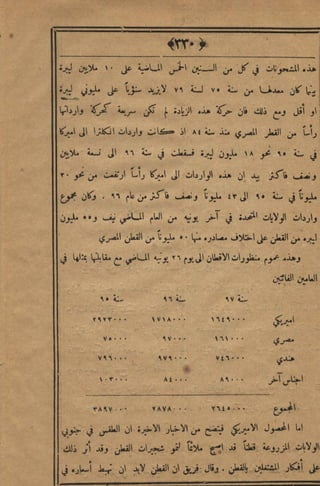 ﴿ ٣٣٠ ﴾
هذه المشحونات في كل من السنين الخمس الماضية على ١٠ ملايين ليبرة
بينما كان معدلها من سنة ٧٥ لسنة ٧٩ لايزيد سنوياً على مليوني ليبرة
او أقل ومع ذلك فان حركة هذه الزيادة لم تكن سريعة كحركة وارداتها
رأساً من القطر المصري منذ سنة ٨٤ اذ كانت واردات انكلترا الى اميركا
في سنة ٩٥ نحو ١٨ مليون ليبرة فسقطت في سنة ٩٦ الى تسعة ملايين
ونصف فاكثر بيد إن هذه الواردات الى اميركا رأساً ارتفعت من نحو ٣٠
مليوناً في سنة ٩٥ الى ٤٣ مليوناً ونصف فاكثر من عام ٩٦ . وكان مجموع
واردات الولايات المتحدة في آخر يونيه من العام الماضي نيف و٥٥ مليون
ليبره من القطن على اختلاف مصادره منها ٥٠ مليوناً من القطن المصري
وهذه عموم منظورات الاقطان الى يوم ٢٦ يونيه الماضي مع مقابلتها بمثلها في
العامين الفائتين
سنة ٩٧ سنة ٩٦ سنة ٩٥
اميريكي ١٦٤٩٠٠٠ ١٧١٨٠٠٠ ٢٩٢٣٠٠٠
مصري ١٦١٠٠٠ ٩٧٠٠٠ ٧٥٠٠٠
هندي ٧٤٦٠٠٠ ٩٧٩٠٠٠ ٧٩٦٠٠٠
اجناس آخر ٨٩٠٠٠ ٨٤٠٠٠ ١٠٣٠٠٠
المجموع ٢٦٤٥٠٠٠ ٢٨٧٨٠٠٠ ٣٨٩٧٠٠٠
اما المحصول الاميركي فيتضح من الاخبار الاخيرة ان الطقس في جنوبي
الولايات المزروعة قطناً قد اصبح ملائماً لنمو شجيرات القطن وقد أثر ذلك
على أفكار المشتغلين بالقطن . وقال فريق ان القطن لابد ان تهبط أسعاره في